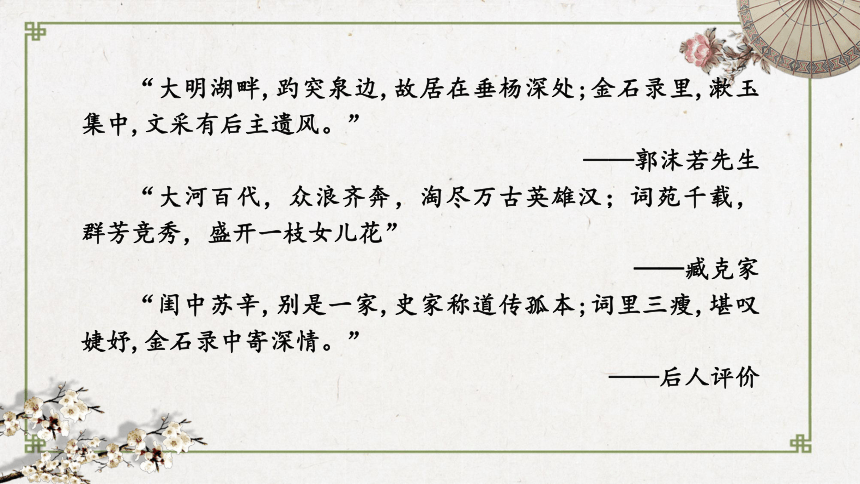 “大明湖畔,趵突泉边,故居在垂杨深处;金石录里,漱玉
集中,文采有后主遗风。”
——郭沫若先生
“大河百代，众浪齐奔，淘尽万古英雄汉；词苑千载，
群芳竞秀，盛开一枝女儿花”
——臧克家
“闺中苏辛,别是一家,史家称道传孤本;词里三瘦,堪叹
婕妤,金石录中寄深情。”
——后人评价